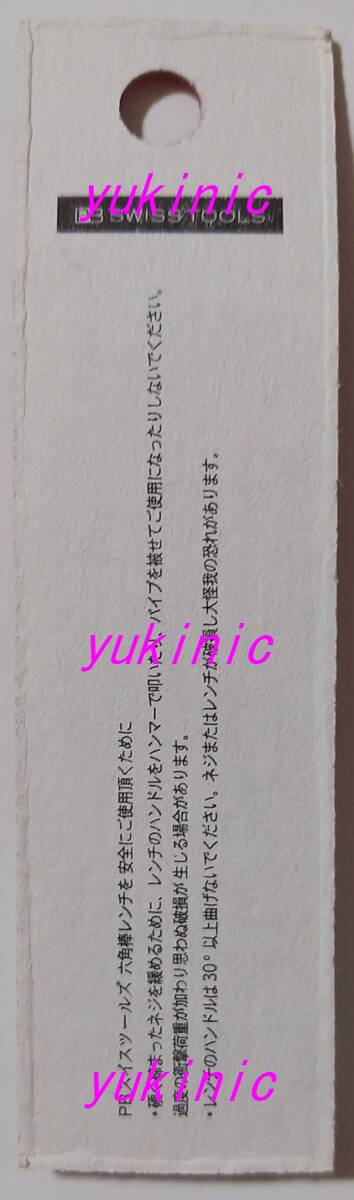 PB SWISS TOOLS
PBスイスツールズ 六角棒レンチを 安全にご使用頂くために
・硬く締まったネジを緩めるために、レンチのハンドルをハンマーで叩いたり、パイプを被せてご使用になったりしないでください。
過度の衝撃荷重が加わり思わぬ破損が生じる場合があります。
・レンチのハンドルは30°以上曲げないでください。ネジまたはレンチが破損し大怪我の恐れがあります。
yukinic
yukinic
yukinic